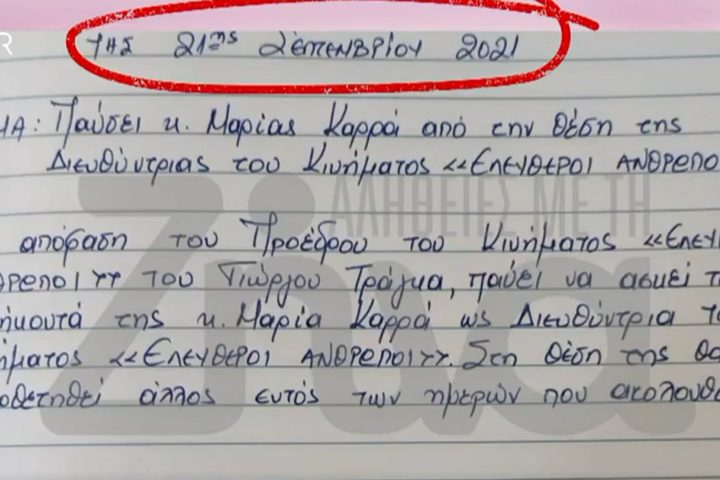 R
της 21ης Σεπτεμβρίου 2021
ΜΑ: Παύσει κ. Μαρίας Καρρά από την θέση της
Διευθύντριας του Κινήματος «ΕΛΕΥΘΕΡΟΙ ΑΝΘΡΕΠΟ
απόφαση του Προέδρου του Κινήματος «ΕΛΕΥ
ΘΡΕΠΟΙ» του Γιώργου Τράγκα, παύει να ασκεί τ
ήκοντά της κ. Μαρία Καρρά ως Διευθύντρια το
ήματος «ΕΛΕΥΘΕΡΟΙ ΑΝΘΡΕΠΟΙ». Στη θέση της θα
οθετηθεί άλλος εντός των ημερών που ακολουθ
Zina
ΑΛΗΘΕΙΕΣ ΜΕ ΤΗ